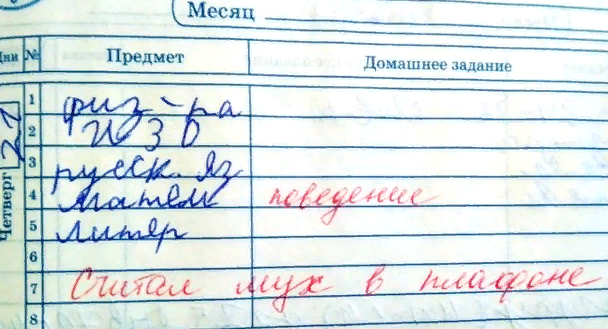 Месяц
Дни № Предмет Домашнее задание
Четверг 21
1 физ-ра
2 ИЗО
3 русск. яз
4 матем поведение
5 литер
6
7 Считал мух в плафоне
8